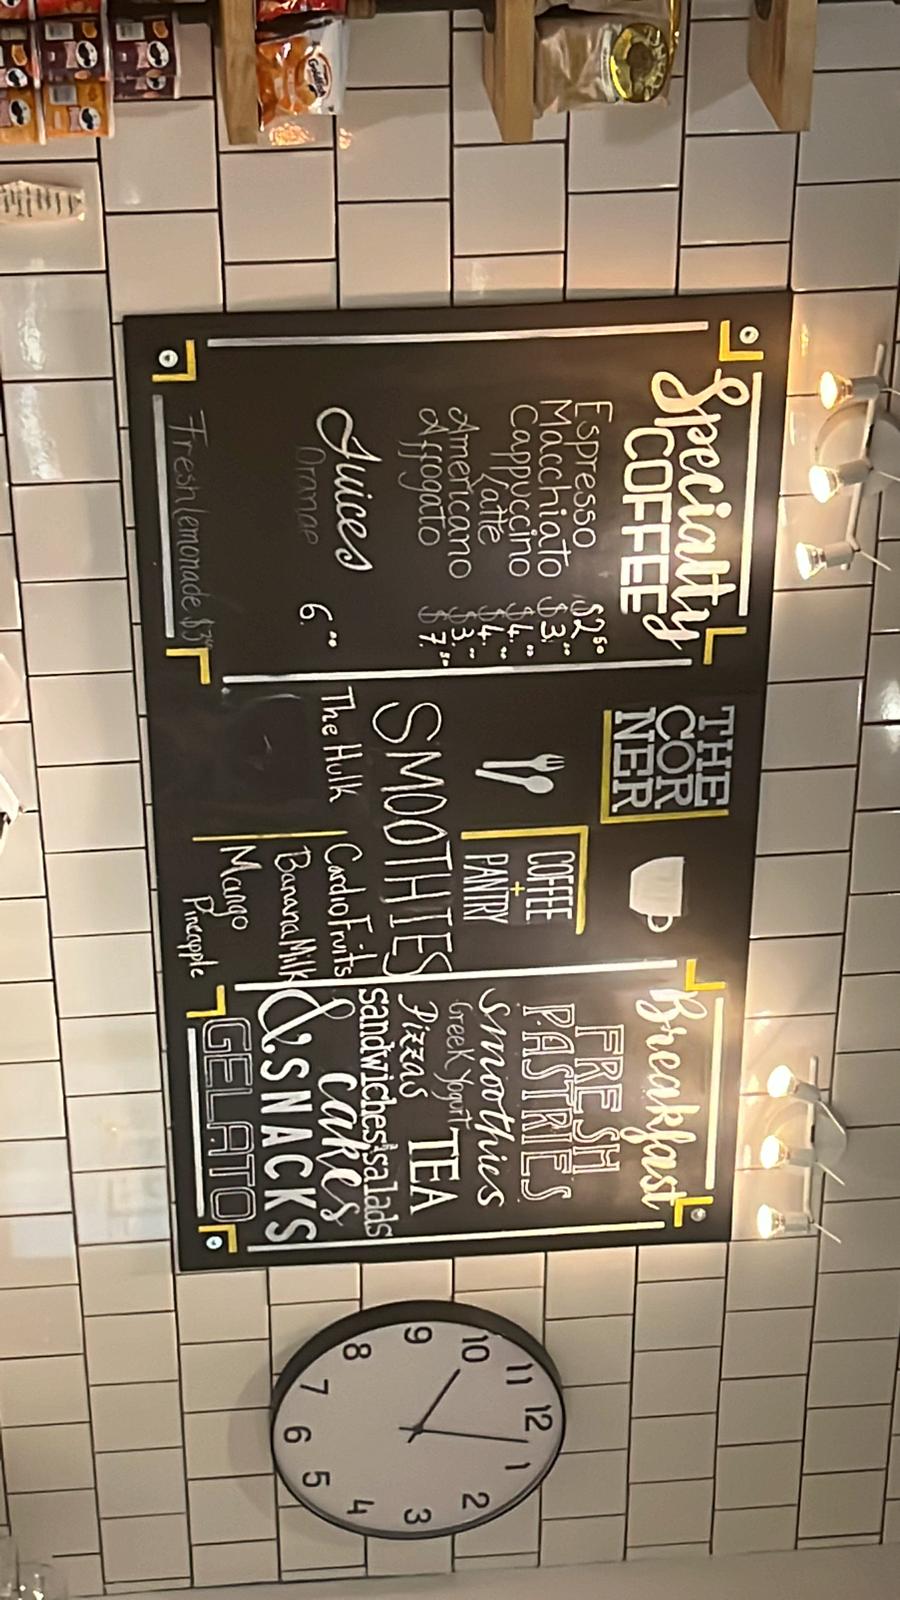 Specialty
COFFEE
Espresso $2.50
Macchiato $3.00
Cappuccino $4.00
Latte $4.00
Americano $3.00
Affogato $7.50
Juices
Orange 6.00
Fresh lemonade $3
THE
COR
NER
COFFEE
+
PANTRY
SMOOTHIES
The Hulk
Cardio Fruits
Banana Milk
Mango
Pineapple
Breakfast
FRESH
PASTRIES
Smoothies
Greek Yogurt
Pizzas TEA
sandwiches & salads
cakes
& SNACKS
GELATO
12
1
2
3
4
5
6
7
8
9
10
11
Goldfish